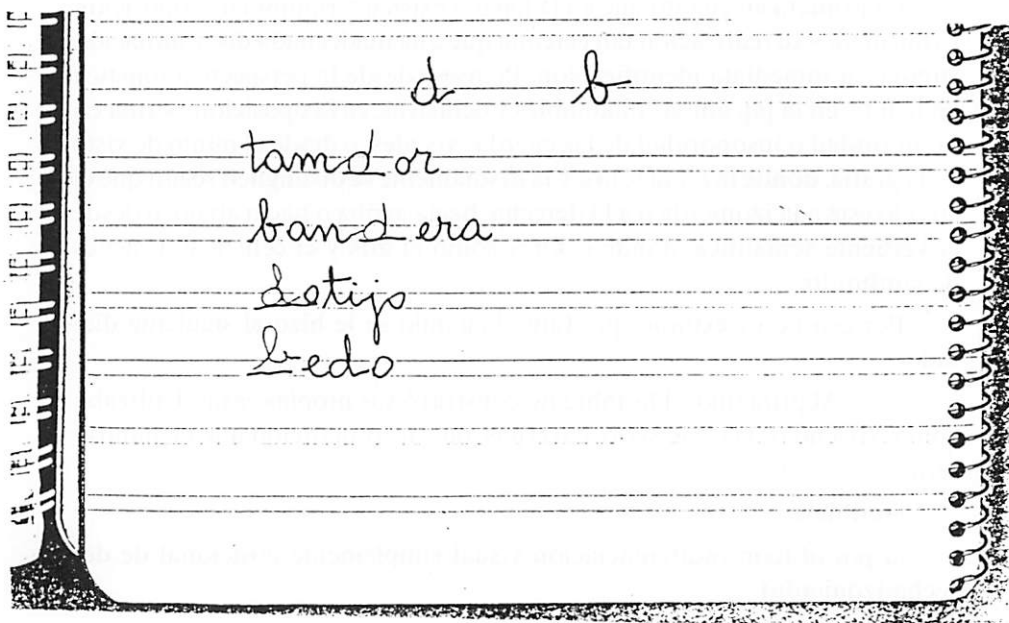 d b
tamdor
bandera
dotijo
bedo